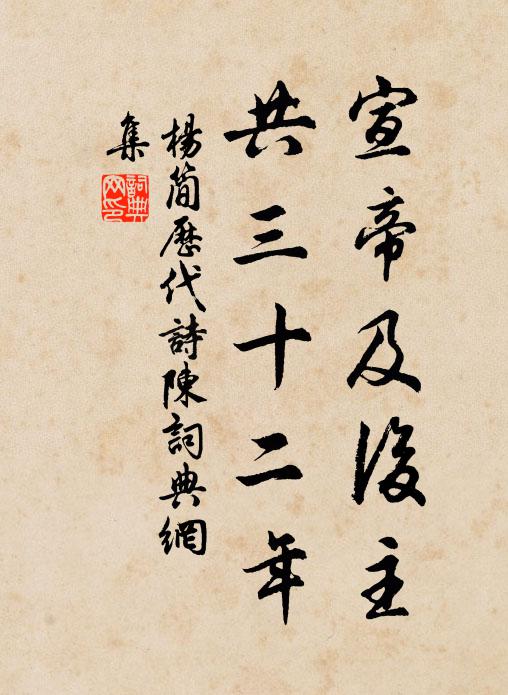 宣帝及後主
共三十二年
楊簡歷代詩陳詞典網
集
詞典網印